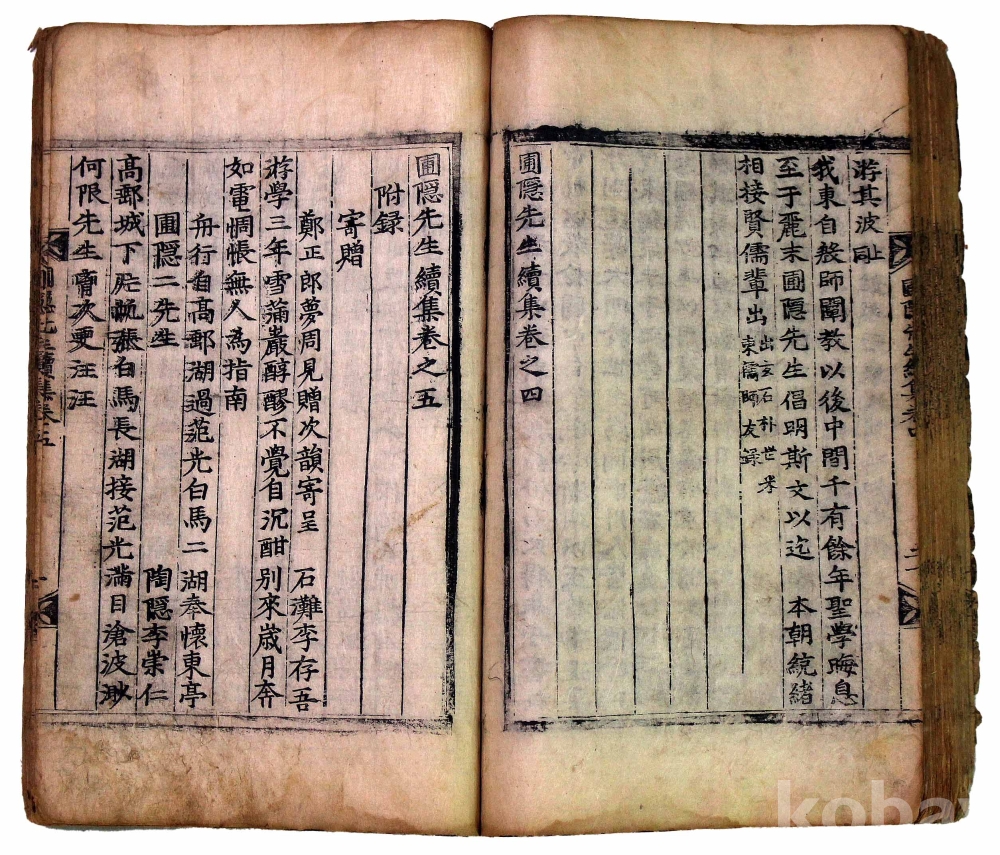 游其波
我東自殷師闡教以後中間千有餘年聖學晦息
至于麗末圃隱先生倡明斯文以迄 本朝統緖
相接賢儒輩出
出玄石朴世采
東儒師友錄
圃隱先生續集卷之四
圃隱先生續集卷之五
附録
寄贈
鄭正郎夢周見贈次韻寄呈 石灘李存吾
游學三年雪滿巖醇醪不覺自沉酣別來歲月奔
如電惆悵無人爲指南
舟行自高郵湖過范光白馬二湖奉懷東亭
圃隱二先生 陶隱李崇仁
高郵城下片帆張白馬長湖接范光滿目滄波渺
何限先生胷次更汪汪
koba